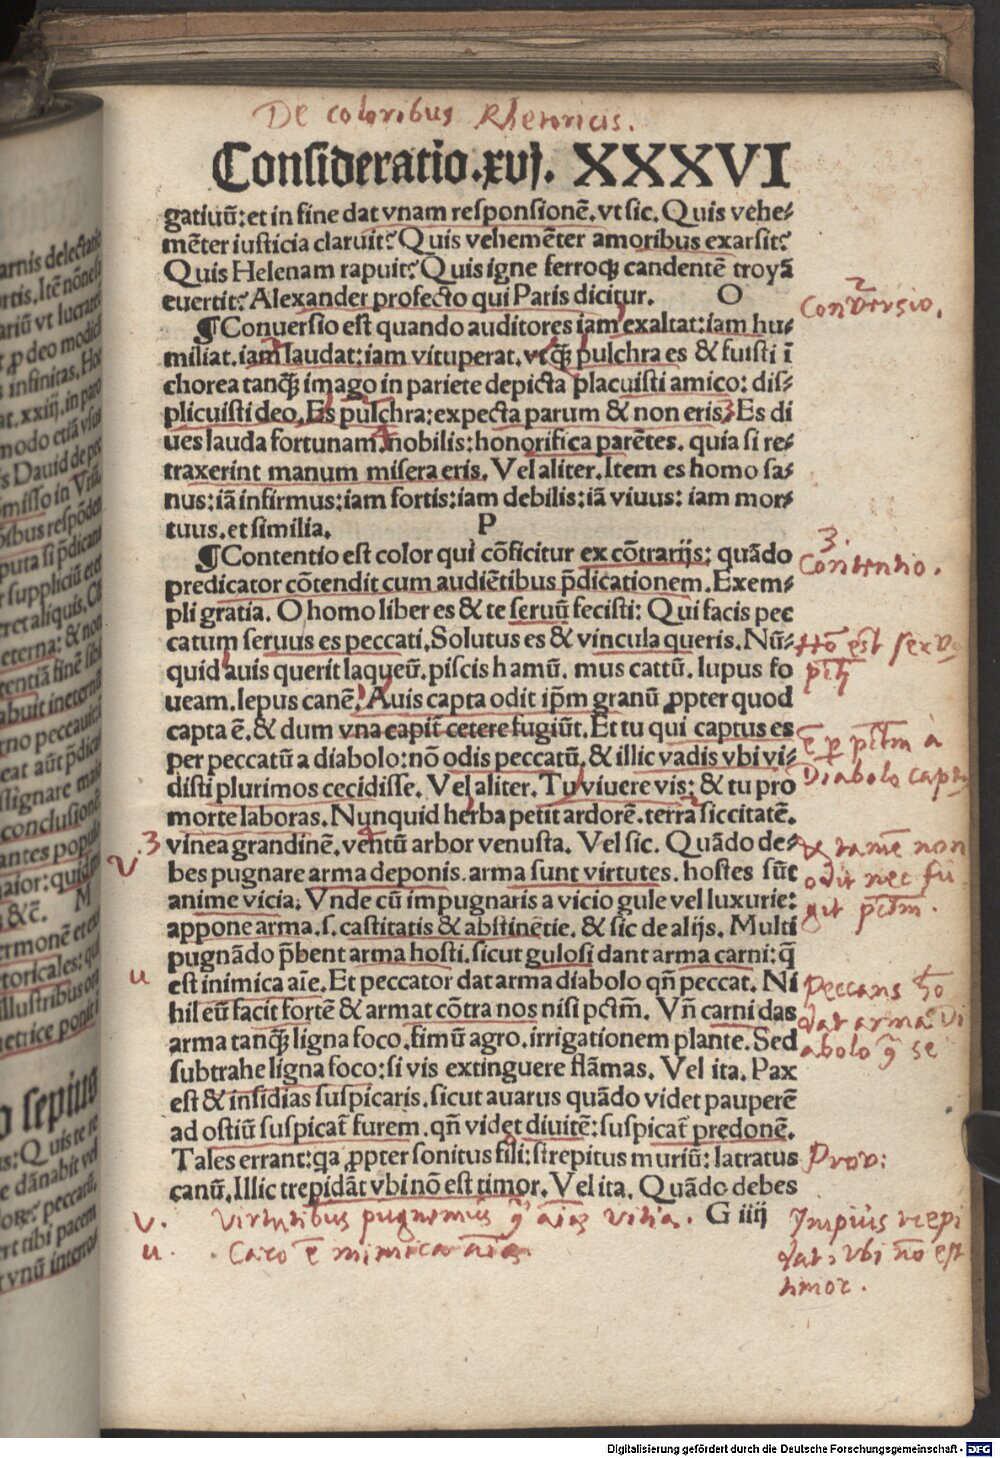 De coloribus Rhetoricis.
Consideratio.xvj. XXXVI
gatiuū: et in fine dat vnam responsionē. vt sic. Quis vehe⸗
mēter iusticia claruit? Quis vehemēter amoribus exarsit?
Quis Helenam rapuit? Quis igne ferroqꝫ candentē troyā
euertit? Alexander profecto qui Paris dicitur. O
2
Conversio.
¶Conuersio est quando auditores iam exaltat: iam hu⸗
miliat. iam laudat: iam vituperat. vt qꝫ pulchra es & fuisti ī
chorea tanqꝫ imago in pariete depicta placuisti amico: dis⸗
plicuisti deo. Es pulchra: expecta parum & non eris. Es di
ues lauda fortunam. nobilis: honorifica parētes. quia si re⸗
traxerint manum misera eris. Vel aliter. Item es homo sa⸗
nus: iā infirmus: iam fortis: iam debilis: iā viuus: iam mor⸗
tuus. et similia. P
3.
Contentio.
¶Contentio est color qui cōficitur ex cōtrarijs: quādo
predicator cōtendit cum audiētibus p̄dicationem. Exem⸗
pli gratia. O homo liber es & te seruū fecisti: Qui facis pec
catum seruus es peccati. Solutus es & vincula queris. Nū⸗
Hō est servus
pcti
quid auis querit laqueū. piscis hamū. mus cattū. lupus fo
ueam. lepus canē? Auis capta odit ip̄m granū ꝓpter quod
capta ē. & dum vna capit̄ cetere fugiūt. Et tu qui captus es
ē per pctm̄ a
Diabolo capt
per peccatū a diabolo: nō odis peccatū. & illic vadis vbi vi⸗
disti plurimos cecidisse. Vel aliter. Tu viuere vis: & tu pro
morte laboras. Nunquid herba petit ardorē. terra siccitatē.
3
v.
vinea grandinē. ventū arbor venusta. Vel sic. Quādo de⸗
& tamē non
odit nec fu
git pctm̄.
bes pugnare arma deponis. arma sunt virtutes. hostes sūt
anime vicia. Vnde cū impugnaris a vicio gule vel luxurie:
appone arma. s. castitatis & abstinētie. & sic de alijs. Multi
pugnādo p̄bent arma hosti. sicut gulosi dant arma carni: q̄
u
est inimica aīe. Et peccator dat arma diabolo qn̄ peccat. Ni
Peccans hō
dat arma Di
abolo  se
hil eū facit fortē & armat cōtra nos nisi pctm̄. Vn̄ carni das
arma tanqꝫ ligna foco. fimū agro. irrigationem plante. Sed
subtrahe ligna foco: si vis extinguere flāmas. Vel ita. Pax
est & insidias suspicaris. sicut auarus quādo videt pauperē
ad ostiū suspicat̄ furem. qn̄ videt diuitē: suspicat̄ predonē.
Tales errant: qa ꝓpter sonitus fili: strepitus muriū: latratus
Prov:
canū. Illic trepidāt vbi nō est timor. Vel ita. Quādo debes
G iiij
v. Virtutibus pugnemus  aīas vitia.
u. Caro ē inimica aīe
Impius trepi
dat, vbi nō est
timor.
arnis delectatio
M
o sepius
Digitalisierung gefördert durch die Deutsche Forschungsgemeinschaft - DFG